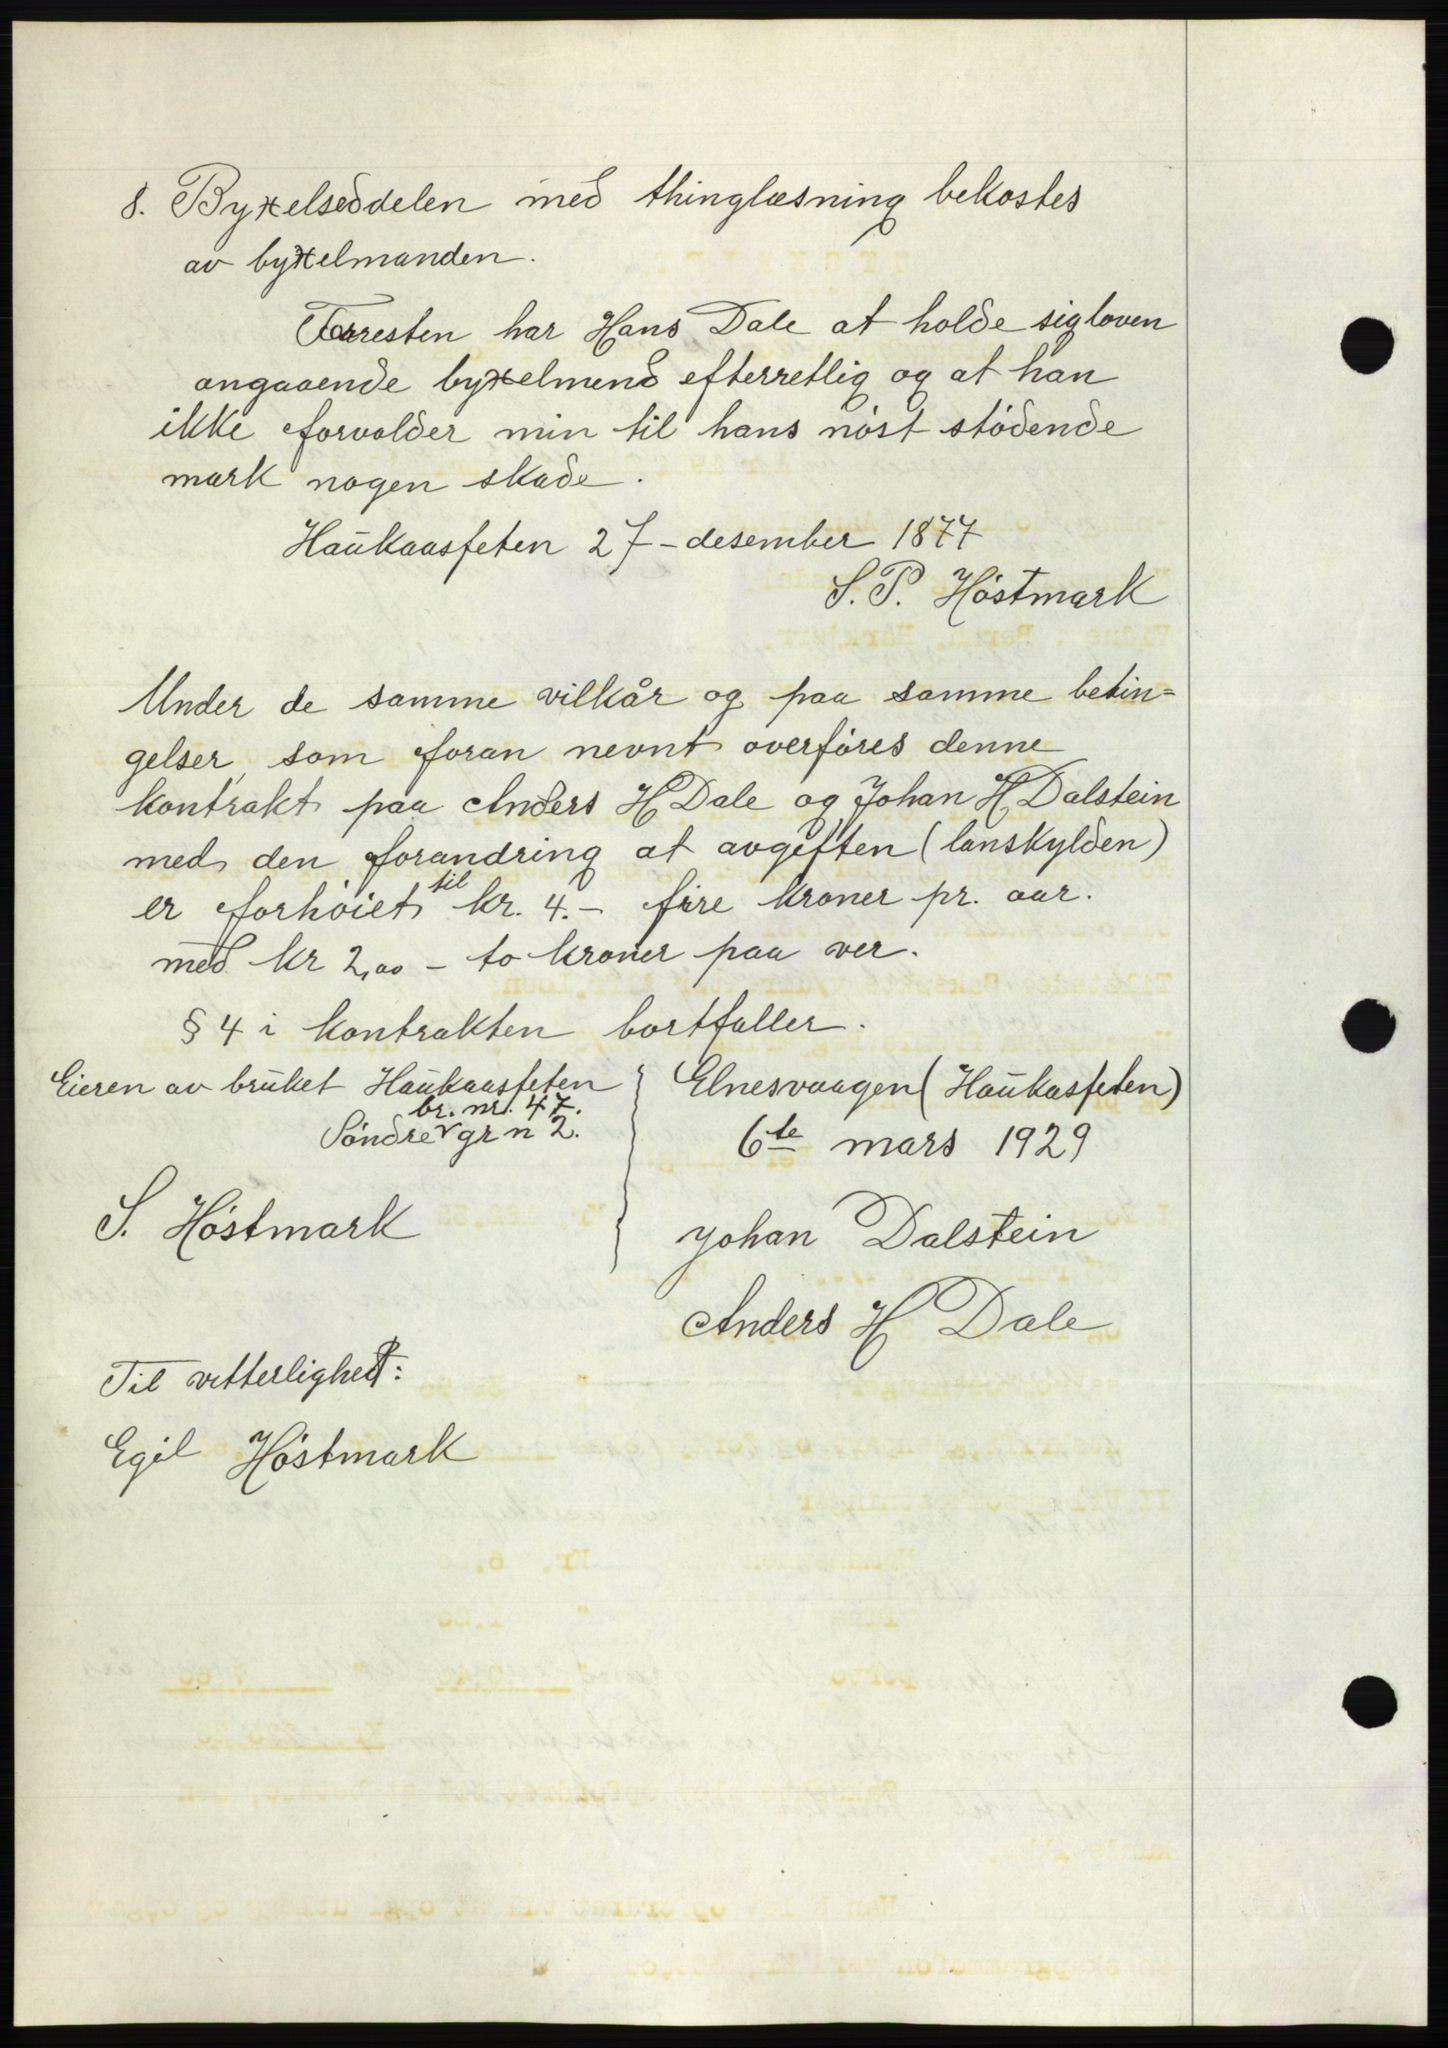 8. Byxelseddelen med thinglæsning bekostes
av byxelmanden.
Forresten har Hans Dale at holde sig loven
angaaende byxelmend efterretlig og at han
ikke forvolder min til hans nöst stödende
mark nogen skade.
Haukaasfeten 27-desember 1877
S. P. Höstmark
Under de samme vilkår og paa samme betin=
gelser som foran nevnt overföres denne
kontrakt paa Anders H Dale og Johan H Dalstein
med den forandring at avgiften (lanskylden)
er forhöiet til kr. 4.- fire kroner pr. aar.
med kr 2,00 - to kroner paa ver.
§ 4 i kontrakten bortfaller.
Eieren av bruket Haukaasfeten
br. nr. 47.
Söndre gr n 2.
S. Höstmark
Elnesvaagen (Haukasfeten)
6te mars 1929
Johan Dalstein
Anders H Dale
Til vitterlighet:
Egil Höstmark